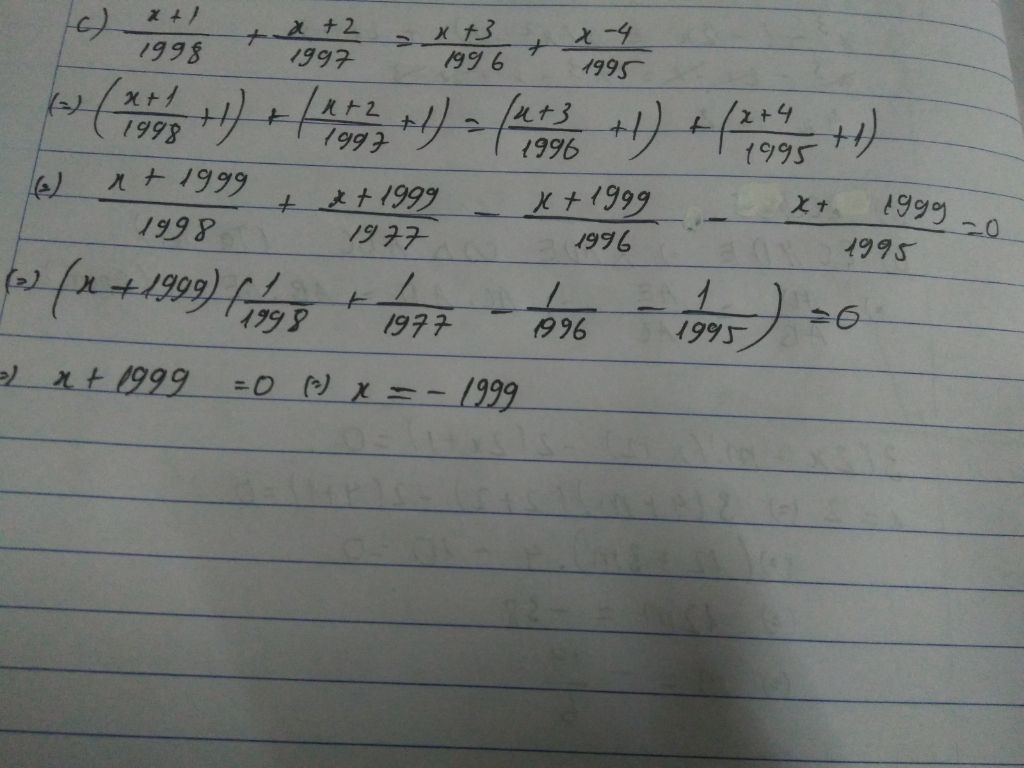 c) \frac{x+1}{1998} + \frac{x+2}{1997} = \frac{x+3}{1996} + \frac{x-4}{1995}
(=) (\frac{x+1}{1998} + 1) + (\frac{x+2}{1997} + 1) = (\frac{x+3}{1996} + 1) + (\frac{x+4}{1995} + 1)
(=) \frac{x+1999}{1998} + \frac{x+1999}{1977} - \frac{x+1999}{1996} - \frac{x+1999}{1995} = 0
(=) (x+1999) (\frac{1}{1998} + \frac{1}{1977} - \frac{1}{1996} - \frac{1}{1995}) = 0
=) x+1999 = 0 (=) x = -1999